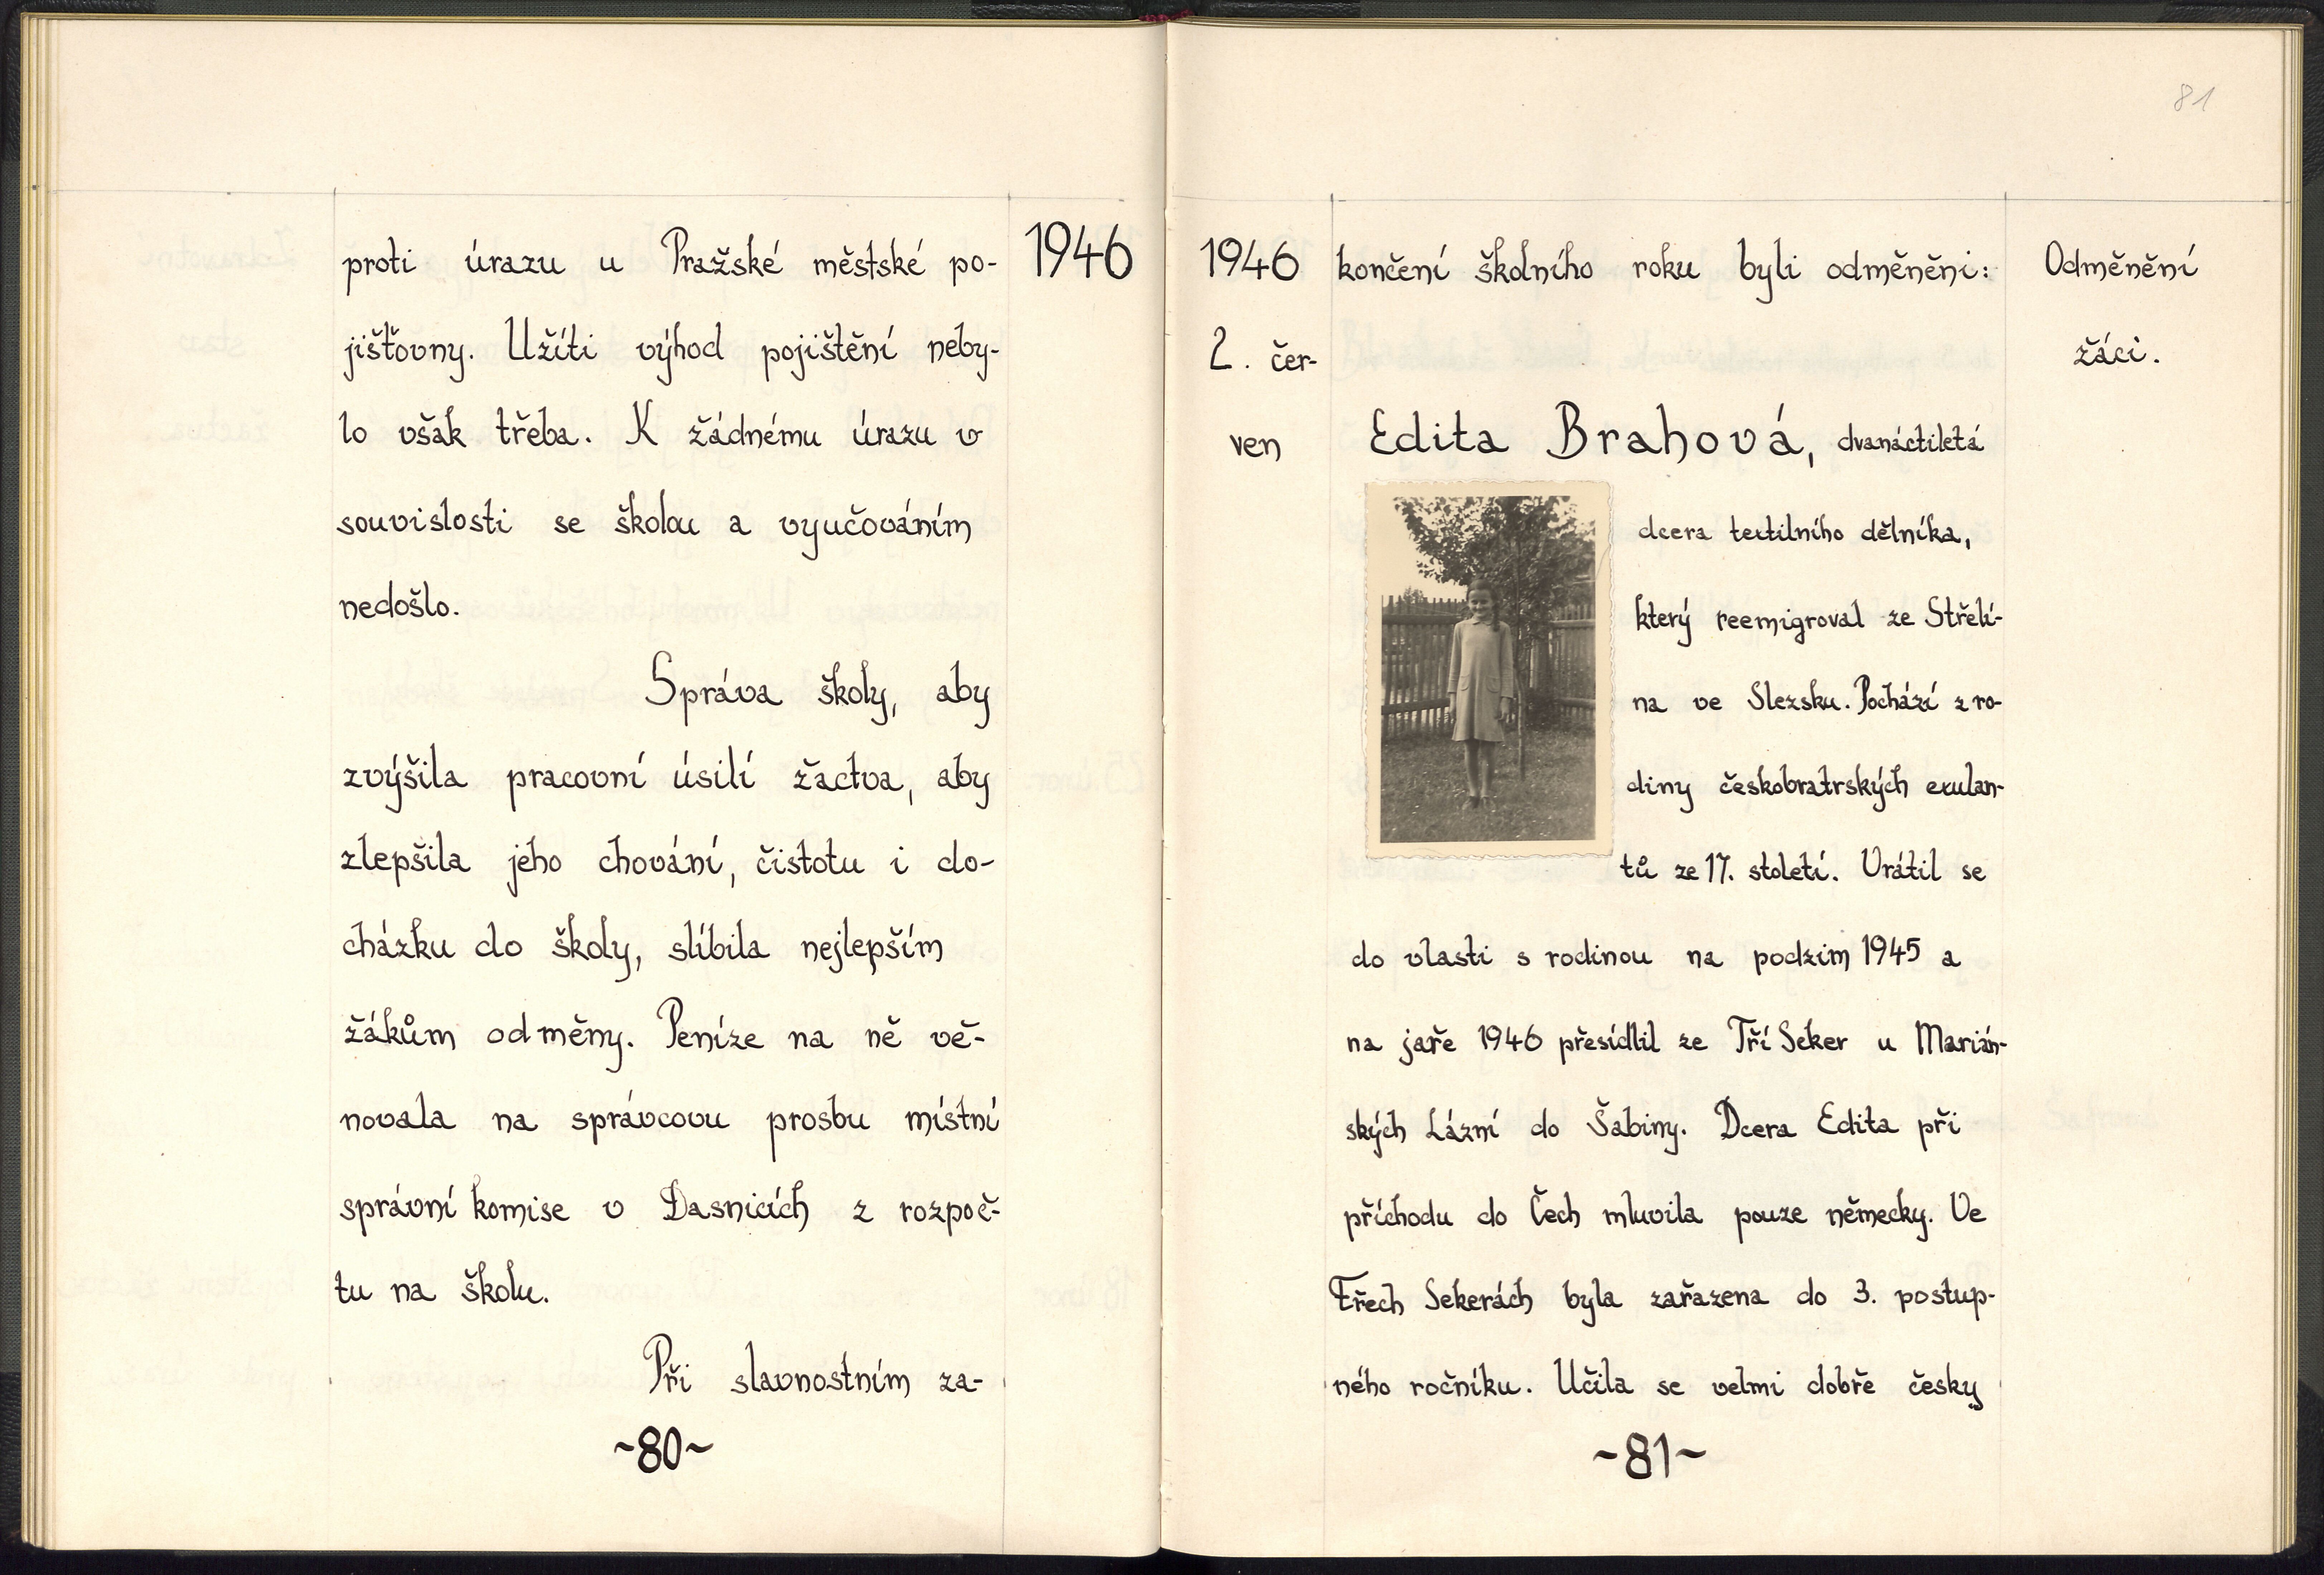 1946
proti úrazu u Pražské městské po-
jišťovny. Užíti výhod pojištění neby-
lo však třeba. K žádnému úrazu v
souvislosti se školou a vyučováním
nedošlo.
Správa školy, aby
zvýšila pracovní úsilí žactva, aby
zlepšila jeho chování, čistotu i do-
cházku do školy, slíbila nejlepším
žákům odměny. Peníze na ně vě-
novala na správcovu prosbu místní
správní komise v Dasnicích z rozpoč-
tu na školu.
Při slavnostním za-
~80~
81
1946
2. čer-
ven
Odměnění
žáci.
končení školního roku byli odměněni:
Edita Brahová, dvanáctiletá
dcera textilního dělníka,
který reemigroval ze Střelí-
na ve Slezsku. Pochází z ro-
diny českobratrských exulan-
tů ze 17. století. Vrátil se
do vlasti s rodinou na podzim 1945 a
na jaře 1946 přesídlil ze Tří Seker u Marián-
ských Lázní do Šabiny. Dcera Edita při
příchodu do Čech mluvila pouze německy. Ve
Třech Sekerách byla zařazena do 3. postup-
ného ročníku. Učila se velmi dobře česky
~81~